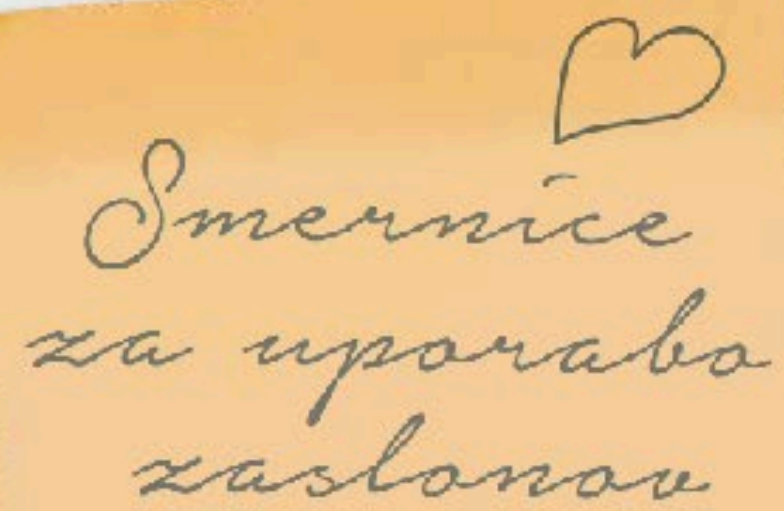 Smernice
za uporabo
zaslonov